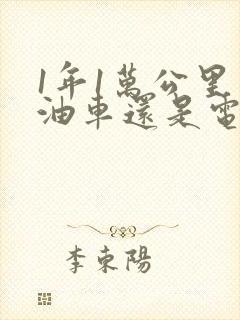 1年1萬公里
油車還是電
李東陽